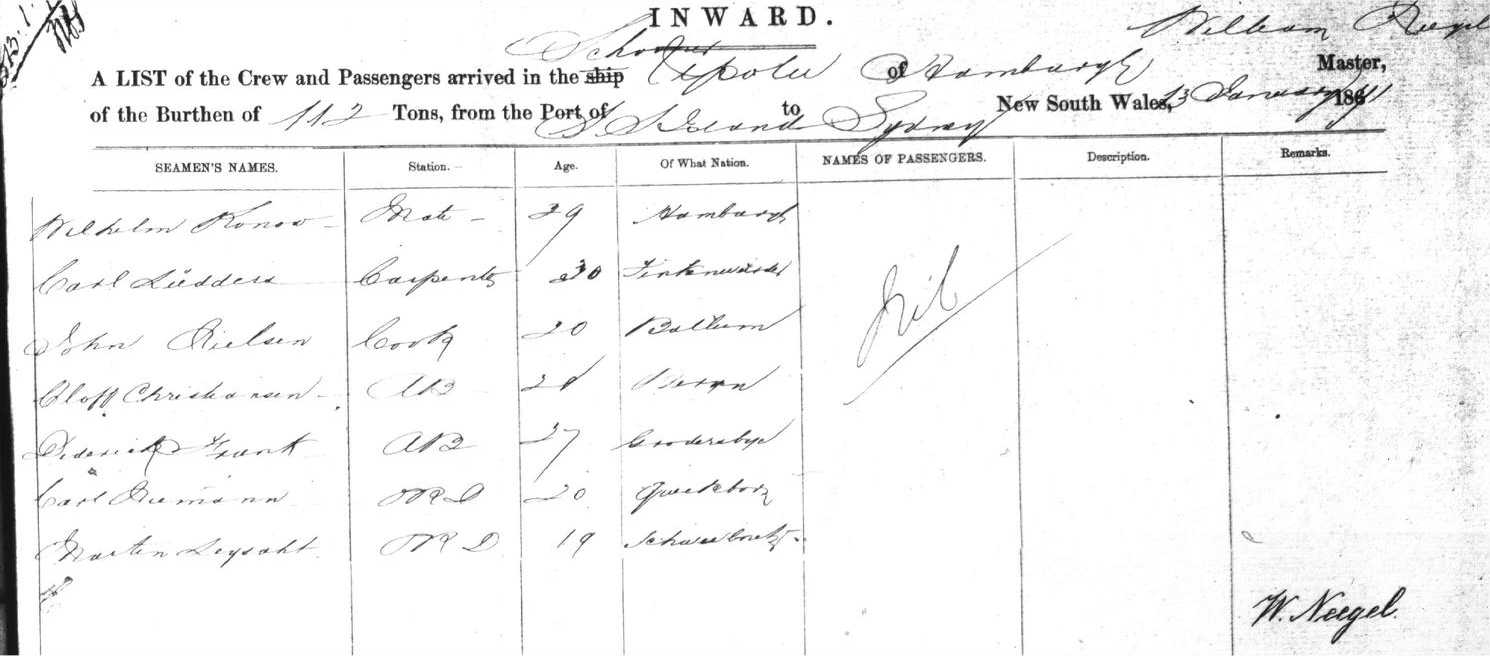 INWARD.
Schooner William
A LIST of the Crew and Passengers arrived in the ship of Hamburgh Master,
of the Burthen of 112 Tons, from the Port of S S Island to Sydney New South Wales, 13 January 186
SEAMEN'S NAMES. Station. Age. Of What Nation. NAMES OF PASSENGERS. Description. Remarks.
Wilhelm Konow Mate 29 Hamburgh
Carl Lüdders Carpenter 30 Finkenwärder
John Nielsen Cook 20 Ballum
Oloff Christiansen AB
Diderick Frank AB 27
Carl Niemann ORD 20 Quickborn
Martin ORD 19
Nil
W. Neegel.